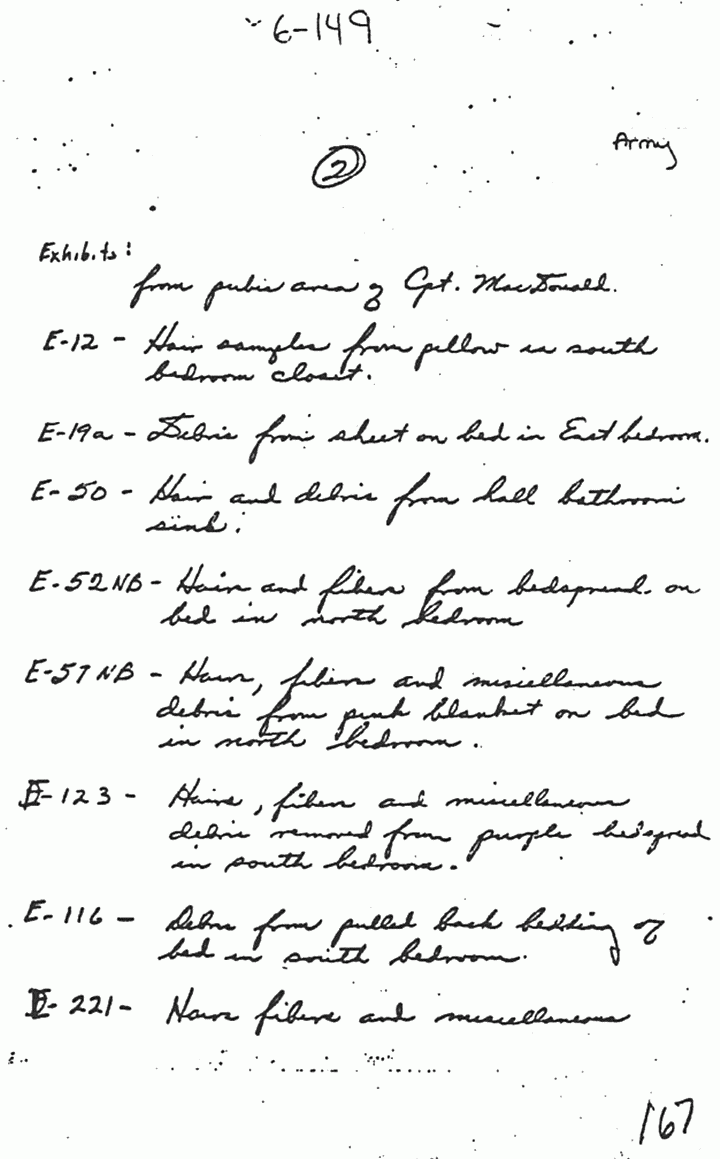 6-149
Army
2
Exhibits:
from pubic area of Cpt. MacDonald.
E-12 - Hair samples from pillow in south
bedroom closet.
E-19a - Debris from sheet on bed in East bedroom.
E-50 - Hair and debris from hall bathroom
sink.
E-52NB - Hairs and fibers from bedspread on
bed in north bedroom
E-57NB - Hairs, fibers and misicellaneous
debris from pink blanket on bed
in north bedroom.
E-123 - Hairs, fibers and miscellaneous
debris removed from purple bedspread
in south bedroom.
E-116 - Debris from pulled back bedding of
bed in south bedroom.
D-221 - Hairs fibers and miscellaneous
167